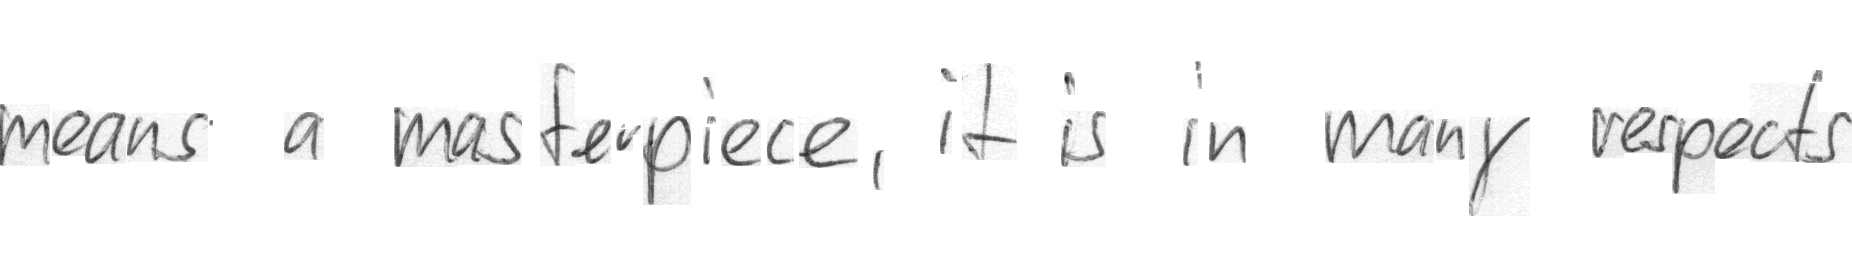 means a masterpiece, it is in many respects